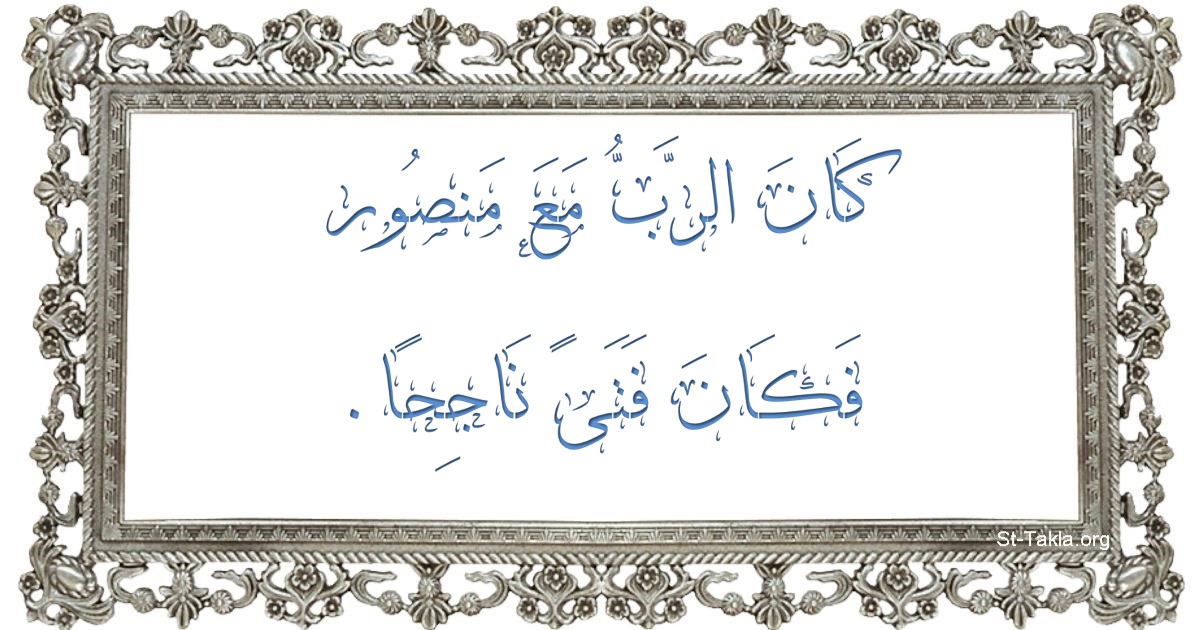 كَانَ الرَّبُّ مَعَ مَنصُور
فَكَانَ فَتَىً نَاجِحًا .
St-Takla.org